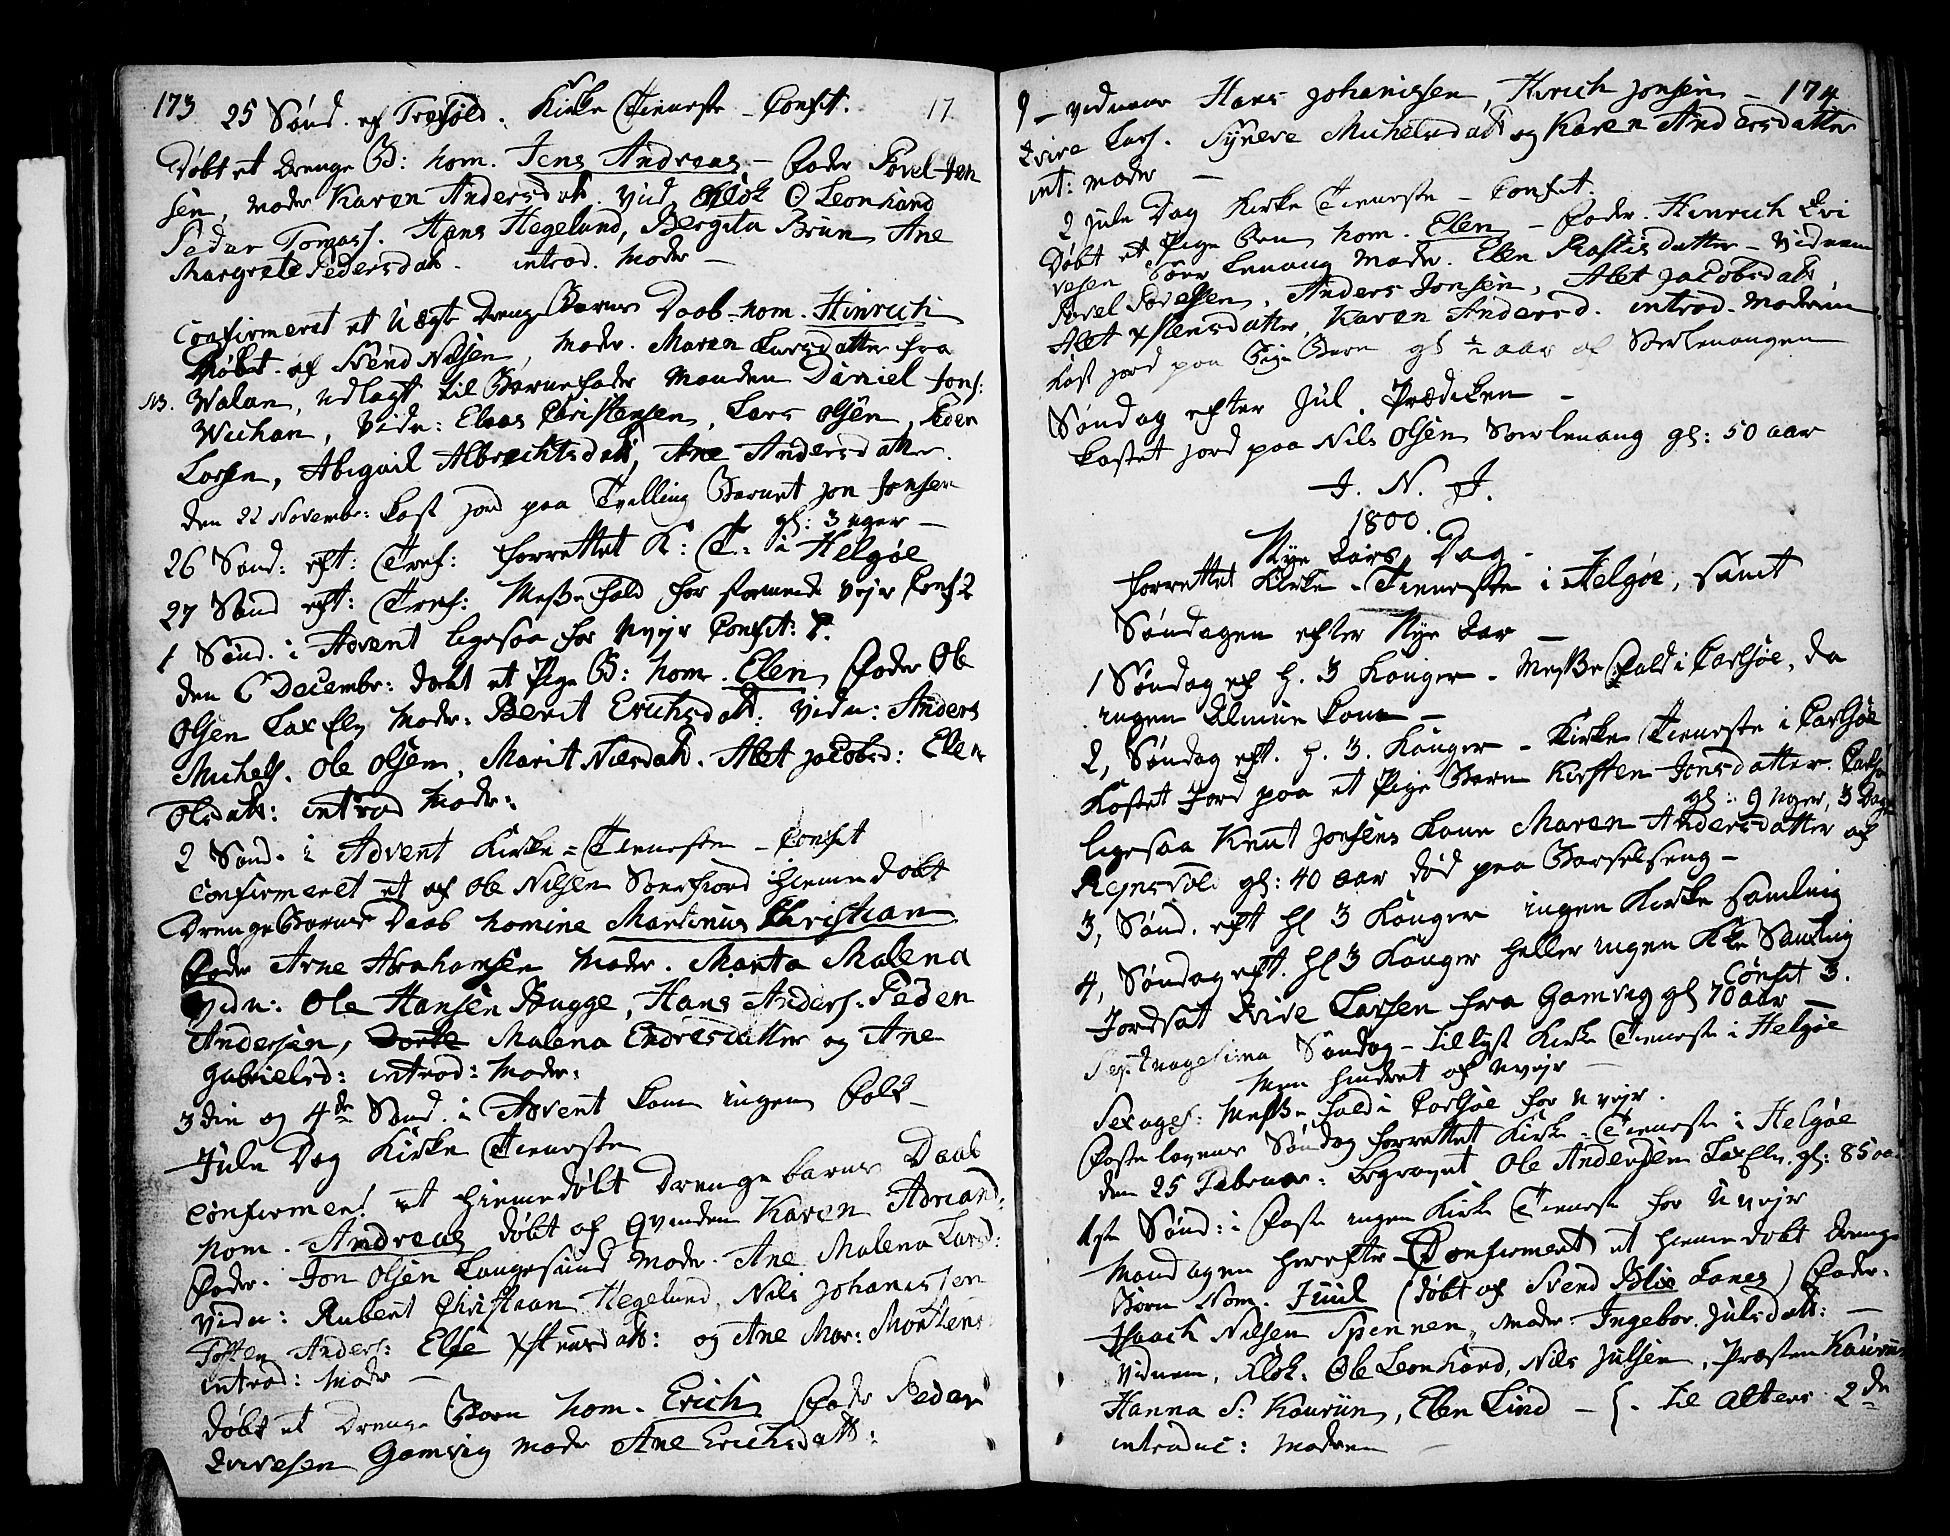 173
25 Sønd. ef Trefold. Kirke Tieneste – Confit. 17.
Døbt et Drenge B: nom. Jens Andreas – Fader Povel Jon
sen, Moder Karen Andersdatt. Vid. Klok O Leonhard
Peder Tomass. Hans Hegelund, Bergita Brun Ane
Margrete Pedersdatt. introd. Moder –
Confirmeret et Uægte Drenge Barns Daab nom. Hinrich
døbt af Svend Nilsen, Moder. Maren Larsdatter fra
NB. Walan, udlagt til Barnefader Manden Daniel Jons:
Wichan, Vidn: Elias Christensen, Lars Olsen, Peder
Larsen, Abigail Albrechtsdatt, Ane Andersdatter.
den 22 Novembr: Kast jord paa Tvilling Barnet Jon Jonsen
gl: 3 uger –
26 Sønd: eft: Tref: forrettet K: T: i Helgøe
27 Sønd eft: Tref: Messefald for stormende Vejr Conf 2
1 Sønd. i Advent ligesaa for Uvejr Confit: P.
den 6 Decembr: døbt et Pige B: nom. Elen Fader Ole
Olsen Laxely Moder: Berit Erichsdatt. Vidn: Anders
Michels. Ole Olsen, Marit Nilsdatt. Alet Jacobsd: Elen
Olsdatt: introd Moder:
2 Sønd. i Advent Kirke = Tieneste – Confit
Confirmeret et af Ole Nilsen Sørfiord hiemme døbt
Drenge Barns Daab nomine Martinus Christian
Fader Arne Abrahamsen Moder. Marta Malena
Vidn: Ole Hansen Bugge, Hans Anders: Peder
Andersen, Dorte Malena Endresdatter og Ane
Gabrielsd: introd: Moder:
3die og 4de Sønd. i Advent kom ingen Folk –
Jule Dag Kirke Tieneste
Confirmert et hiemmedøbt Drengebarns Daab
nom. Andreas døbt af Qvinden Karen Adriand:
Fader. Jon Olsen Langesund Moder. Ane Malena Larsd:
Vidn: Rubert Christian Hegelund, Nils Johanissen
Tosten Anders: Else Xstensdatt: og Ane Mar: Mortens
introd: Moder –
døbt et Drenge Barn nom. Erich Fader Peder
Iversen Gamvig Moder Ane Erichsdatt:
174
Vidnerne Hans Johanissen, Hinrich Jonsen –
Iver Lars. Synneve Michelsdatt og Karen Andersdatter
int: Moder –
2 Jule Dag Kirke Tieneste – Confit.
Døbt et Pige Barn nom. Elen – Fader. Hinrich Ivi
versen Sørlenang Moder. Elen Rastisdatter – Vidnerne
Povel Povelsen, Anders Jonsen, Alet Jacobsdatt
Alet Xstensdatter, Karen Andersd. introd. Moderen
Kast jord paa Pige Barn gl ½ aar af Sørlenangen
Søndag efter Jul. Prædiken –
Kastet jord paa Nils Olsen Sørlenang gl: 50 aar
I. N. J.
1800.
Nye Aars Dag –
forrettet Kirke-Tieneste i Helgøe, samt
Søndagen efter Nye Aar –
1 Søndag ef H. 3 Konger – Messe Fald i Carlsøe, da
ingen Almue kom –
2, Søndag eft. H. 3. Konger – Kirke Tieneste i Carlsøe
Kastet Jord paa et Pige Barn Kirsten Jonsdatter Carlsø
gl: 9 Uger, 3 Dage
ligesaa Knut Jonsens Kone Maren Andersdatter af
Rejnsvold gl: 40 Aar død paa Barselseng –
3, Sønd. eft Hl 3 Konger ingen Kirke samling
4, Søndag eft. Hl 3 Konger heller ingen Kke Samling
Confit 3.
Jordsat Iver Larsen fra Gamvig gl 70 aar –
Septuagesima Søndag – tillyst Kirke Tieneste i Helgøe
Men hindret af Uvejr –
Sexages: Messefald i Carlsøe for Uvejr.
Fastelavens Søndag forrettet Kirke-Tieneste i Helgøe
den 25 Februar: begravet Ole Andersen Laxely. gl: 85 aar
1ste Sønd: i Faste ingen Kirke Tieneste for Uvejr
Mandagen herefter Confirmert et hiemmedøbt Drenge
Barn Nom. Juul (døbt af Svend Blix Lanes) Fader.
Isaach Nilsen Spennen, Moder – Ingebor. Julsdatt: –
Vidnerne, Klok. Ole Leonhard, Nils Julsen, Præsten Kaurin
Hanna S: Kaurin, Elen Lind – . til Alters 2de
introduc: Moderen –